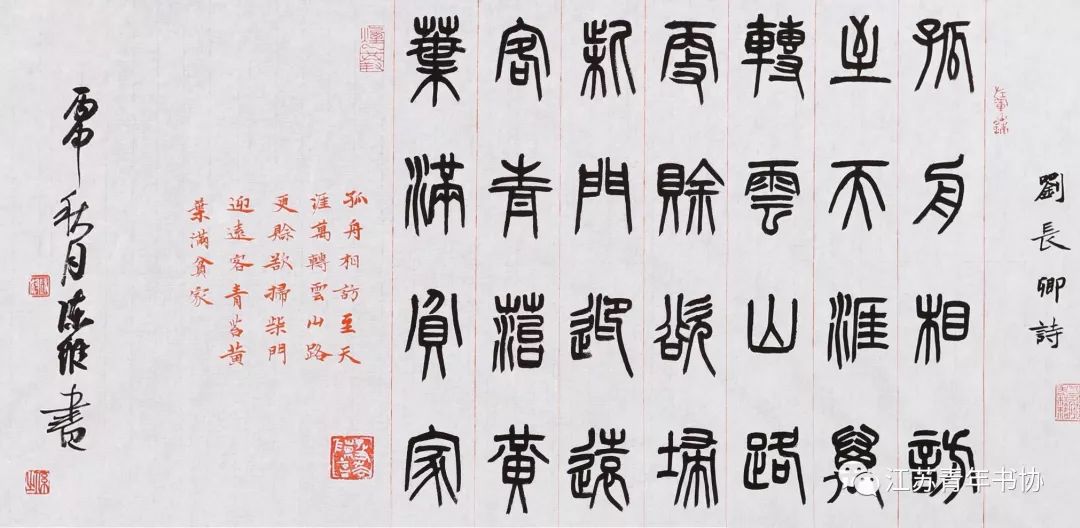 劉長卿詩
孤舟相訪
至天涯萬
轉雲山路
更賒欲掃
柴門迎遠
客青菭黃
葉滿貧家
孤舟相訪至天
涯萬轉雲山路
更賒欲掃柴門
迎遠客青苔黃
葉滿貧家
丙申秋月陳維書
江苏青年书协